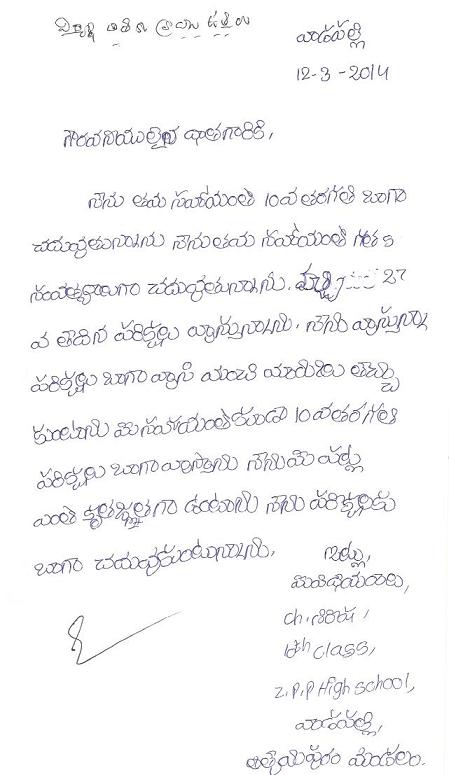 విద్యార్థి రాసిన ఉత్తరం
వాడపల్లి
12-3-2014
గౌరవనీయులైన దాతగారికి,
నేను తమ సహాయంతో 10వ తరగతి బాగా
చదువుతున్నాను నేను తమ సహాయంతో గత 5
సంవత్సరాలుగా చదువుతున్నాను. మార్చి 27
వ తేదిన పరిక్షలు వ్రాస్తున్నాను. నేను వ్రాస్తున్న
పరిక్షలు బాగా వ్రాసి మంచి మార్కులు తెచ్చు
కుంటాను మి సహాయంతో కుడా 10వతరగతి
పరిక్షలు బాగా వ్రాస్తాను నేను మి పట్ల
ఎంతో కృతజ్ఞతగా ఉంటాను నేను పరిక్షలకు
బాగా చదువుకుంటున్నాను.
ఇట్లు,
మి విధేయరాలు,
ch. శిరిష,
10th class,
Z.P.P High school,
వాడపల్లి,
ఆత్రేయపురం మండలం.